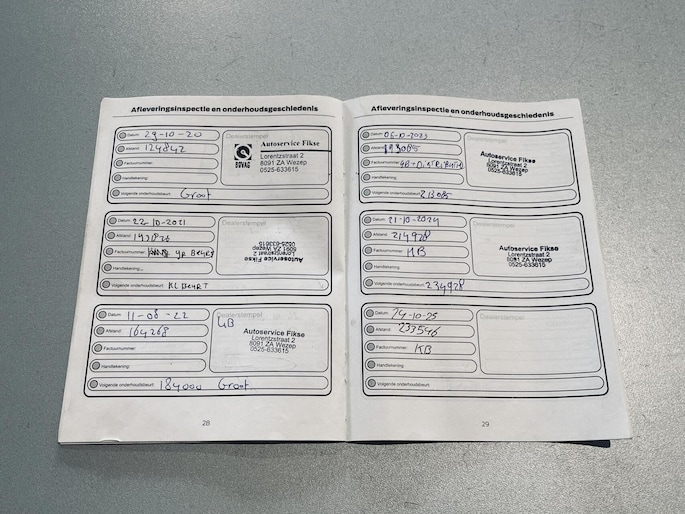 Afleveringsinspectie en onderhoudsgeschiedenis
Datum: 29-10-20
Afstand: 124842
Factuurnummer:
Handtekening:
Volgende onderhoudsbeurt: Groot
Dealerstempel
BOVAG
Autoservice Fikse
Lorentzstraat 2
8091 ZA Wezep
0525-633615
Datum: 22-10-2021
Afstand:
Factuurnummer: BEURT
Handtekening:
Volgende onderhoudsbeurt: KL BEURT
Dealerstempel
Autoservice Fikse
Lorentzstraat 2
8091 ZA Wezep
0525-633615
Datum: 11-08-22
Afstand: 164268
Factuurnummer:
Handtekening:
Volgende onderhoudsbeurt: 184000 Groot
Dealerstempel
GB
Autoservice Fikse
Lorentzstraat 2
8091 ZA Wezep
0525-633615
28
Afleveringsinspectie en onderhoudsgeschiedenis
Datum: 06-10-2023
Afstand: 193085
Factuurnummer: GB+
Handtekening:
Volgende onderhoudsbeurt: 213085
Dealerstempel
Autoservice Fikse
Lorentzstraat 2
8091 ZA Wezep
0525-633615
Datum: 21-10-2024
Afstand: 214928
Factuurnummer: KB
Handtekening:
Volgende onderhoudsbeurt: 234928
Dealerstempel
Autoservice Fikse
Lorentzstraat 2
8091 ZA Wezep
0525-633615
Datum: 14-10-25
Afstand: 233546
Factuurnummer: KB
Handtekening:
Volgende onderhoudsbeurt:
Dealerstempel
29